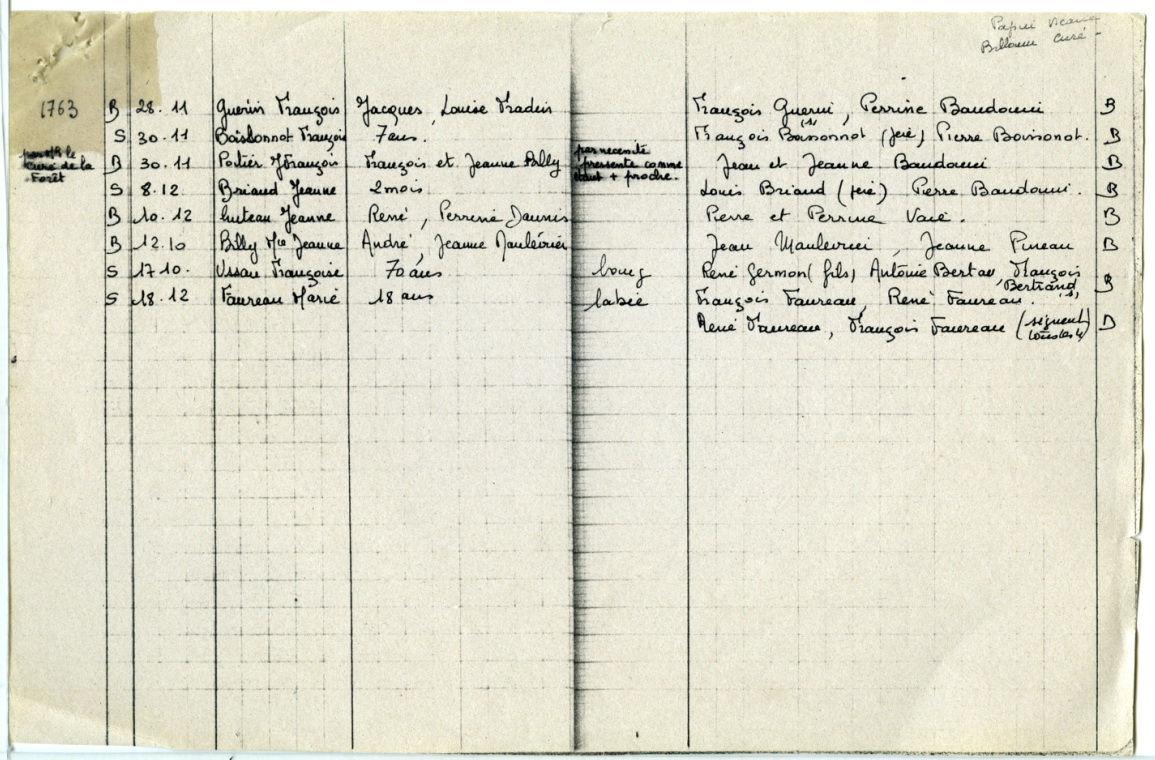 Papin vicaire
Billouin curé -
1763 B 28.11 Guerin François Jacques, Louise Tradin François Guerin, Perrine Baudouin B
S 30.11 Boissonnot François 7 ans. François Boissonnot (s) (père) Pierre Boisonot. B
par M. le curé de la Forêt
B 30.11 Potier J François François et Jeanne Billy par necessité presente comme étant + proche. Jean et Jeanne Baudouin B
S 8.12. Briaud Jeanne 2 mois Louis Briaud (père) Pierre Baudouin. B
B 10.12 Luteau Jeanne René, Perrine Daunis Pierre et Perrine Vaie. B
B 12.10 Billy Mie Jeanne André, Jeanne Maulévrier Jean Maulevrier, Jeanne Pineau B
S 17 10. Ussau Françoise 70 ans bourg René Germon (fils) Antoine Bertau, François Bertrand (s) B
S 18.12 Faureau Marie 18 ans labie François Faureau, René Faureau.
René Faureau, François Faureau (signent tous les 4) B